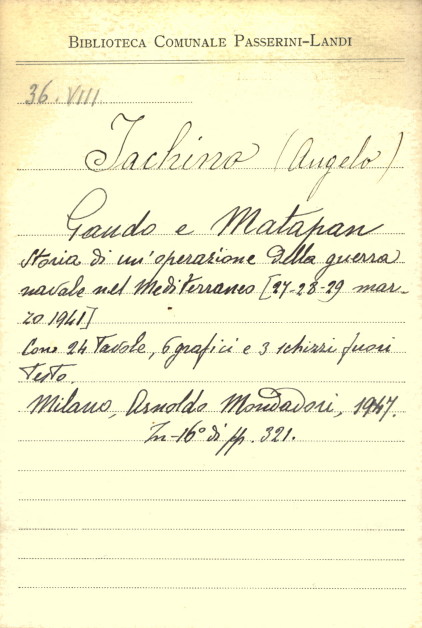 BIBLIOTECA COMUNALE PASSERINI-LANDI
36. VIII
Iachino (Angelo)
Gaudo e Matapan
Storia di un'operazione della guerra
navale nel Mediterraneo [27-28-29 mar-
zo 1941]
Con 24 tavole, 6 grafici e 3 schizzi fuori
testo.
Milano, Arnoldo Mondadori, 1947.
In-16° di pp. 321.